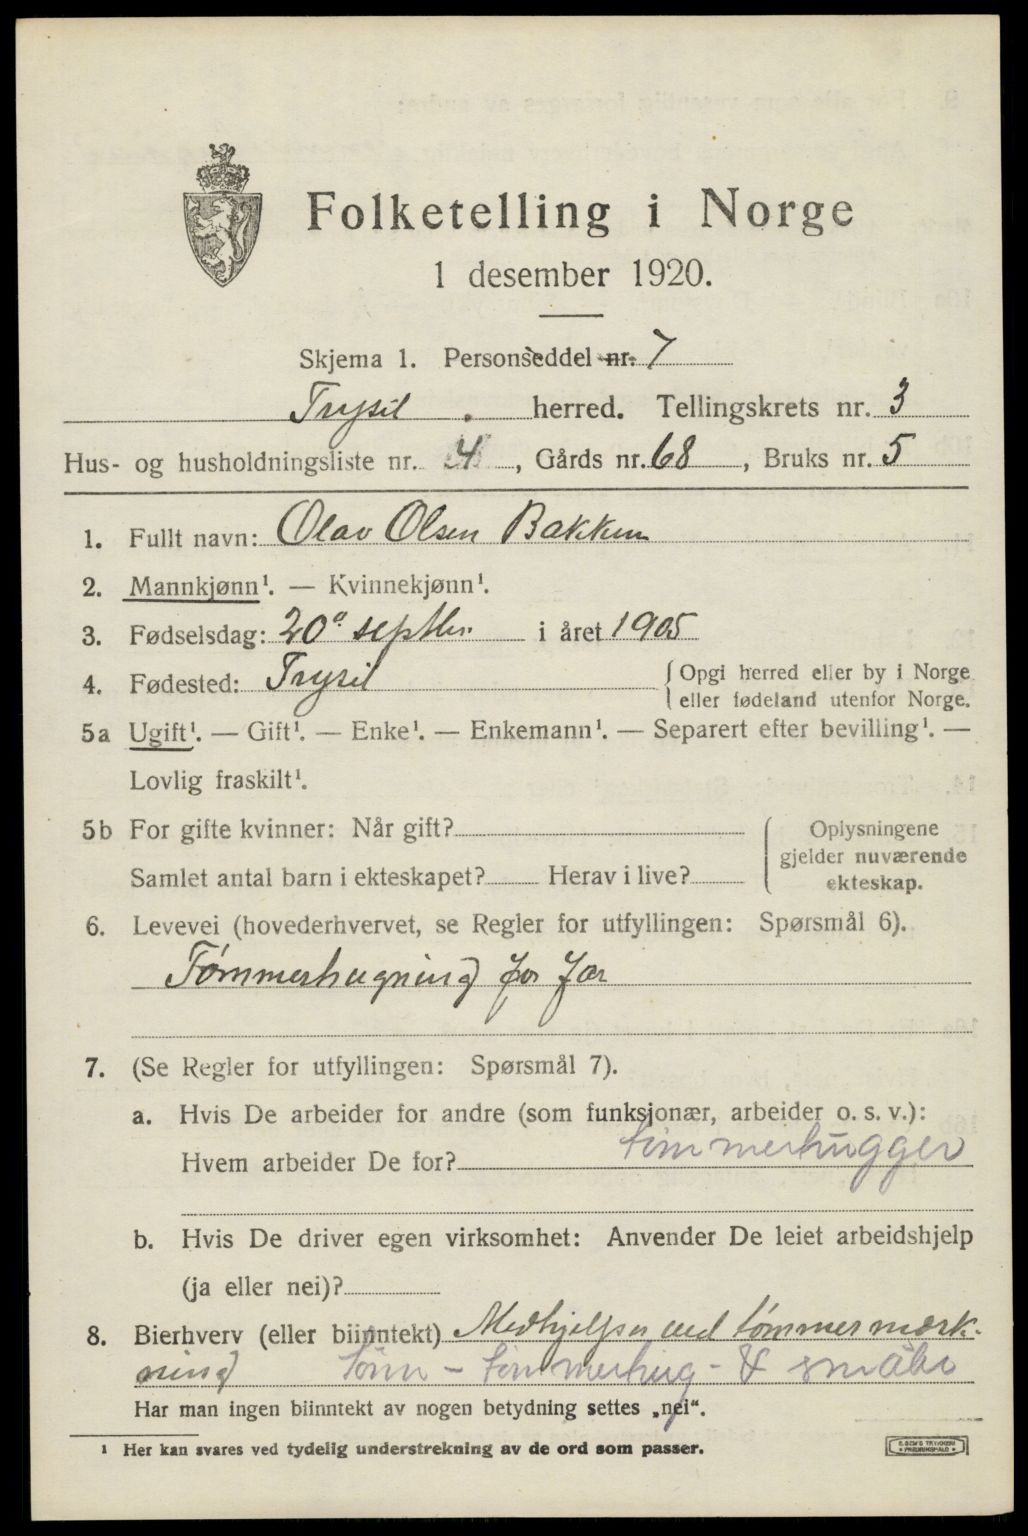 Folketelling i Norge
1 desember 1920.
Skjema 1. Personseddel nr. 7
Trysil . herred. Tellingskrets nr. 3
Hus- og husholdningsliste nr. 4, Gårds nr. 68, Bruks nr. 5
1. Fullt navn: Olav Olsen Bakken
2. Mannkjønn¹. — Kvinnekjønn¹.
3. Fødselsdag: 20de septbr. i året 1905
4. Fødested: Trysil { Opgi herred eller by i Norge
eller fødeland utenfor Norge.
5a Ugift¹. — Gift¹. — Enke¹. — Enkemann¹. — Separert efter bevilling¹. —
Lovlig fraskilt¹.
5b For gifte kvinner: Når gift?
Samlet antal barn i ekteskapet? Herav i live?
{ Oplysningene
gjelder nuværende
ekteskap.
6. Levevei (hovederhvervet, se Regler for utfyllingen: Spørsmål 6).
Tømmerhugning for far
7. (Se Regler for utfyllingen: Spørsmål 7).
a. Hvis De arbeider for andre (som funksjonær, arbeider o. s. v.):
Hvem arbeider De for? tømmerhugger
b. Hvis De driver egen virksomhet: Anvender De leiet arbeidshjelp
(ja eller nei)?
8. Bierhverv (eller biinntekt) Medhjelper ved tømmermerk-
ning Sønn - tømmerhug - & småbr
Har man ingen biinntekt av nogen betydning settes „nei“.
¹ Her kan svares ved tydelig understrekning av de ord som passer.